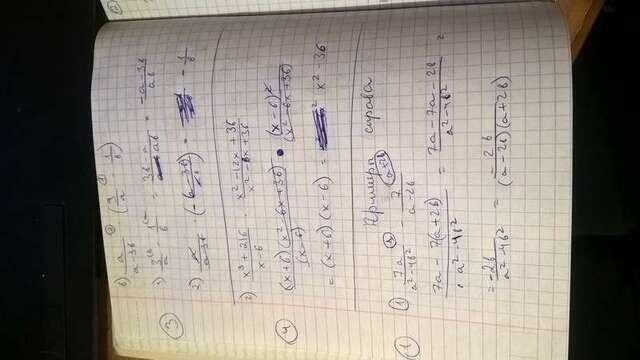 в) a/(a-3b) · (3/a - 1/b)
3
1) 3/a - 1/b = (3b-a)/ab = (-a-3b)/ab
2) a/(a-3b) · (-(a-3b)/ab) = -1/b
г) (x³+216)/(x-6) · (x²-12x+36)/(x²-6x+36)
4
(x+6)(x²-6x+36)/(x-6) · (x-6)²/(x²-6x+36)
= (x+6)(x-6) = x²-36
Примеры справа
1
1) 7a/(a²-4b²) - 7/(a-2b) (a+2b)
(7a-7(a+2b))/(a²-4b²) = (7a-7a-2b)/(a²-4b²) =
= -2b/(a²-4b²) = -2b/((a-2b)(a+2b))